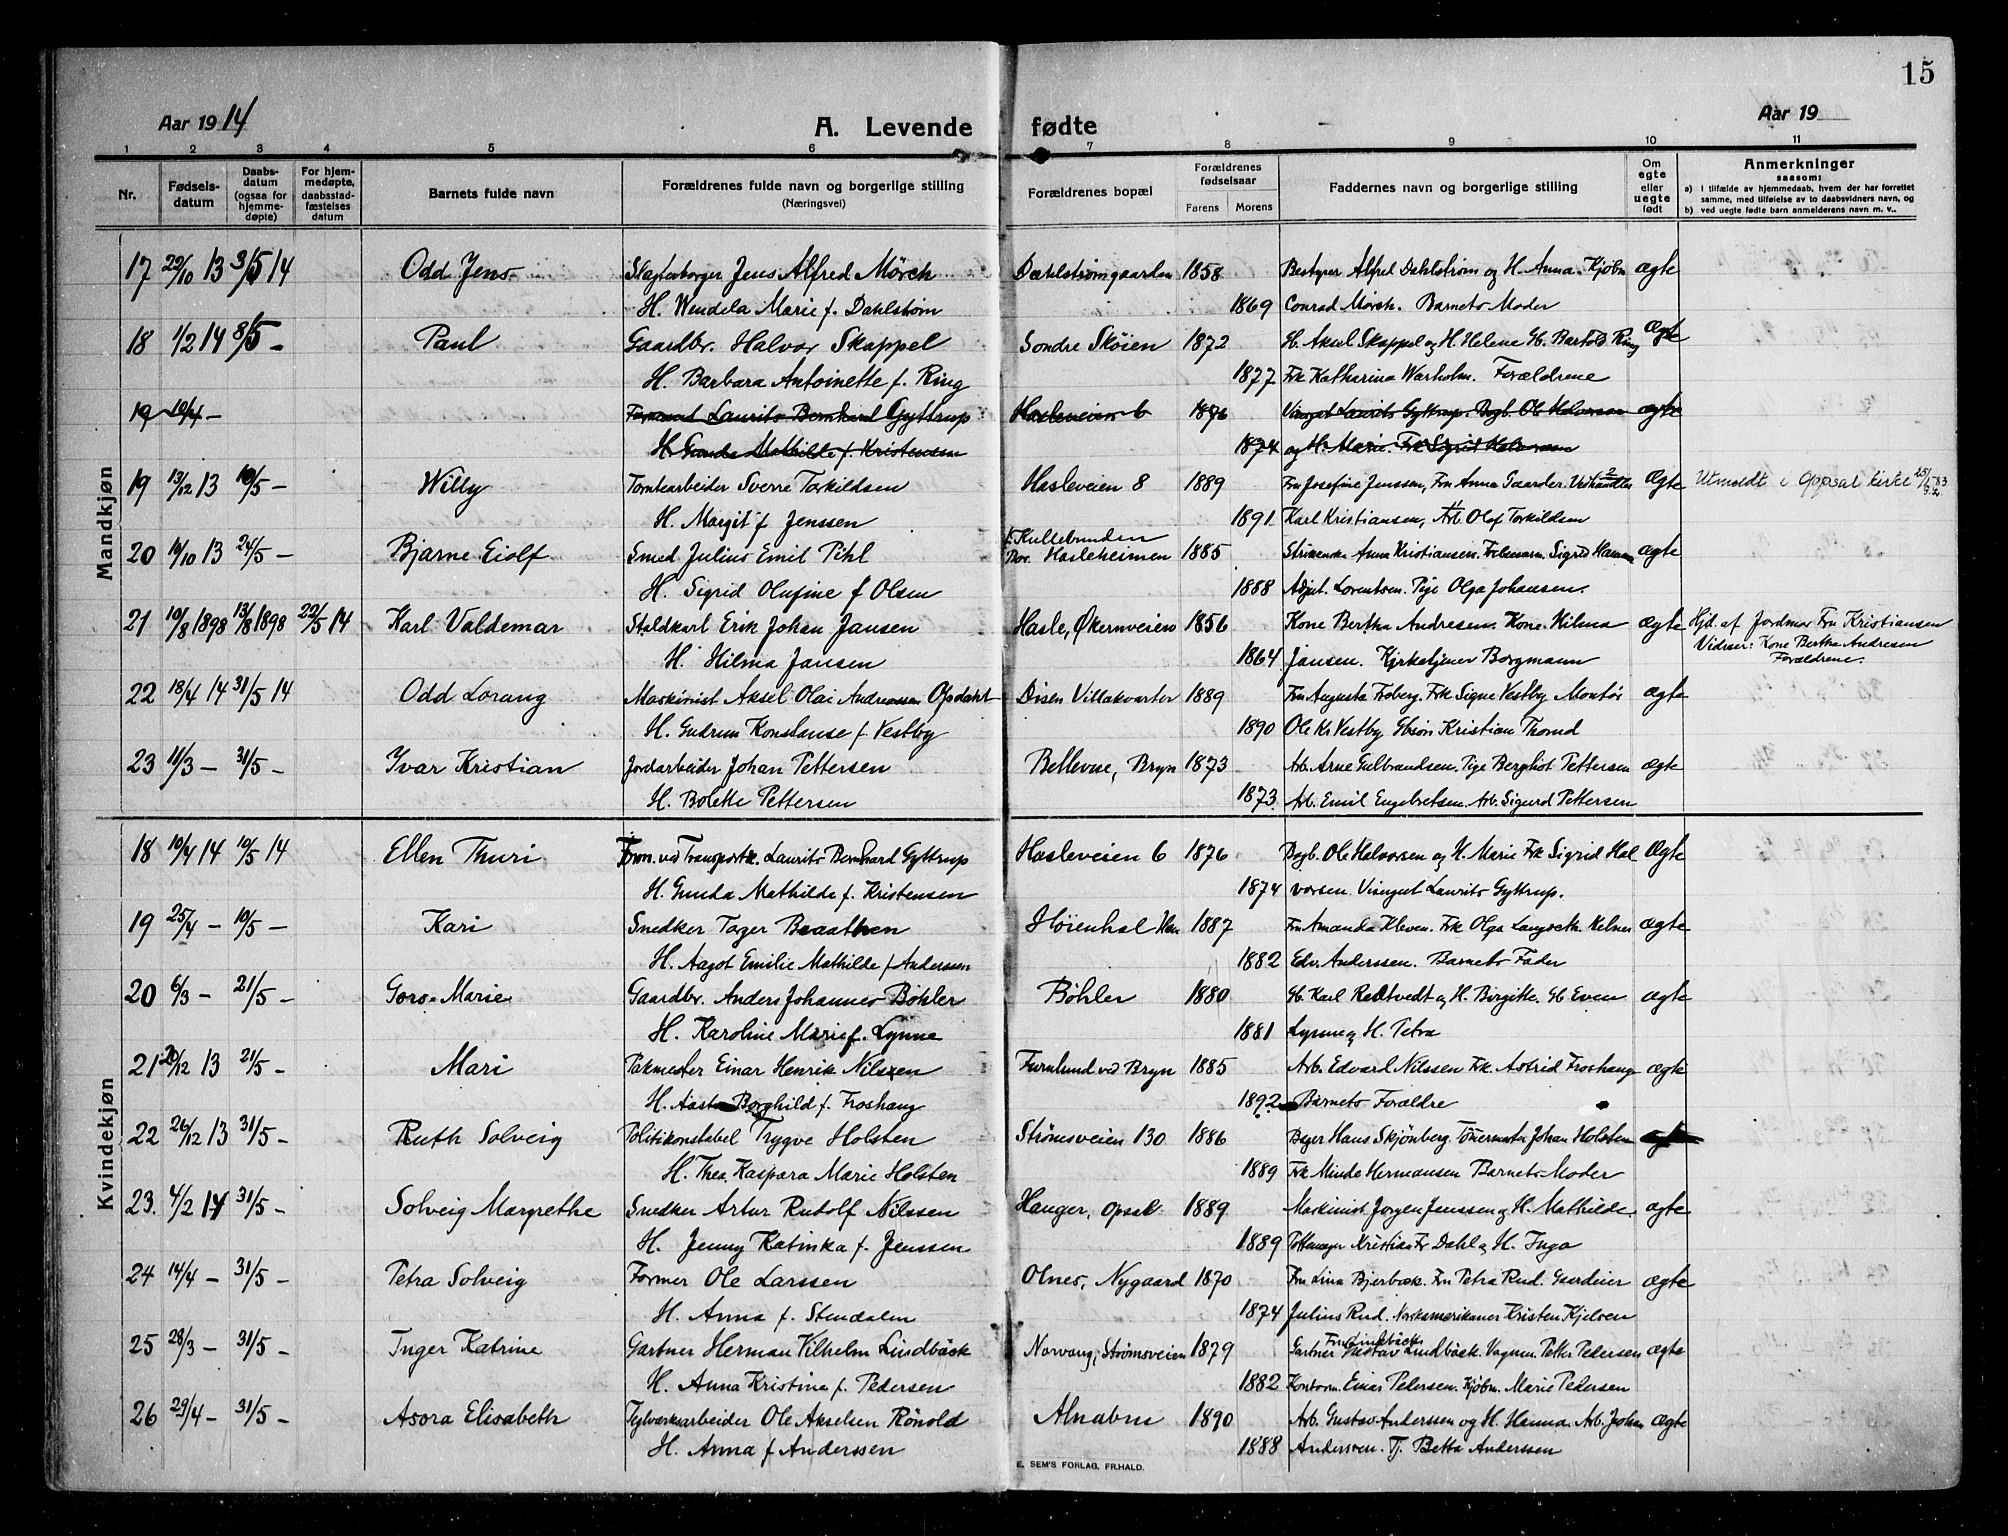 15
Aar 1914 A. Levende fødte Aar 19
1 2 3 4 5 6 7 8 9 10 11
Nr.
Fødsels-
datum
Daabs-
datum
(ogsaa for
hjemme-
døpte)
For hjem-
medøpte,
daabsstad-
fæstelses
datum
Barnets fulde navn
Forældrenes fulde navn og borgerlige stilling
(Næringsvei)
Forældrenes bopæl
Forældrenes
fødselsaar
Farens Morens
Faddernes navn og borgerlige stilling
Om
egte
eller
uegte
født
Anmerkninger
saasom:
a) i tilfælde av hjemmedaab, hvem der har forrettet
samme, med tilføielse av to daabsvidners navn, og
b) ved uegte fødte barn anmelderens navn m. v..
Mandkjøn
17 22/10 13 3/5 14 Odd Jens Slagterborger Jens Alfred Mörch Dæhlstrømgaarden 1858 Bestyrer Alfred Dahlstrøm og H. Anna. Kjøbm ægte
H. Wendela Marie f. Dahlstrøm 1869 Conrad Mørch. Barnets Moder
18 1/2 14 8/5 - Paul Gaardbr. Halvor Skappel Søndre Skøien 1872 Gb. Aksel Skappel og H Helene Gb. Bartold Ring Ægte
H. Barbara Antoinette f. Ring 1877 Frk Katharina Warholm. Forældrene
19 10/4 - Laurits Bernhard Gyttrup Hasleveien 6 1876 Vingut Laurits Gyttrup. Dogb. Ole Halvorsen ægte
H Gunda Mathilde f. Kristensen 1874 og H. Marie. Frk Sigrid Halvorsen
19 13/12 13 10/5 - Willy Tomtearbeider Sverre Torkildsen Hasleveien 8 1889 Fru Josefine Jenssen, Fru Anna Gaarder. Vedhandler Ægte Utmeldt i Oppsal kirke
H. Margit f Jenssen 1891 Karl Kristiansen, Arb. Olof Torkildsen
20 19/10 13 24/5 - Bjarne Eiolf Smed Julius Emil Pihl Kullebunden
Hasleheimen 1885 Anna Kristiansen. Sigrid Hansen ægte
H. Sigrid Olufine f Olsen 1888 Adjut. Lorentsen. Pige Olga Johansen.
21 10/8 1898 13/8 1898 22/5 14 Karl Valdemar Staldkarl Erik Johan Jansen Hasle, Økernveien 1856 Kone Bertha Andresen. Kone Hilma ægte Hjd. af Jordmor Fru Kristiansen
H. Hilma Jansen 1864 Jansen. Kirketjener Borgmann Vidner: Kone Bertha Andresen
Forældrene.
22 18/4 14 31/5 14 Odd Lorang Maskinist Aksel Olai Andreassen Opdahl Disen Villakvarter 1889 Fru Augusta Froberg. Frk Signe Vestby Montør ægte
H. Gudrun Konstanse f Vestby 1890 Ole Kr Vestby Gbsøn Kristian Thorud
23 11/3 - 31/5 - Ivar Kristian Jordarbeider Johan Pettersen Bellevue, Bryn 1873 Arb. Arne Gulbrandsen. Pige Bergliot Pettersen ægte
H. Bolette Pettersen 1873. Arb. Emil Engebretsen. Arb. Sigurd Pettersen
Kvindekjøn
18 10/4 14 10/5 14 Ellen Thuri Form. ved Transportk. Laurits Bernhard Gyttrup Hasleveien 6 1876 Dogb. Ole Halvorsen og H. Marie Frk Sigrid Hal Ægte
H. Gunda Mathilde f. Kristensen 1874 vorsen. Vingut Laurits Gyttrup.
19 25/4 - 10/5 - Kari Snedker Tager Braathen Høienhal 1887 Fru Amanda Kleven. Frk Olga Langseth. Kelner ægte
H. Aagot Emilie Mathilde f Anderssen 1882 Edv. Anderssen. Barnets Fader
20 6/3 - 21/5 - Goro Marie Gaardbr. Anders Johannes Bøhler Bøhler 1880 Gb. Karl Redtvedt og H. Birgitte. Gb Even ægte
H. Karoline Marie f. Lynne 1881 Lynne og H. Petra
21 20/12 13 21/5 - Mari Pakmester Einar Henrik Nilssen Furulund ved Bryn 1885 Arb. Edvard Nilssen Frk. Astrid Froshaug ægte
H. Aasta Borghild f. Froshaug 1892 Barnets Forældre
22 26/12 13 31/5 - Ruth Solveig Politikonstabel Trygve Holsten Strömsveien 130 1886 Hans Skjønberg. Johan Holsten ægte
H. Thea Kaspara Marie Holsten 1889 Frk Minda Hermansen Barnets Moder
23. 4/2 14 31/5 - Solveig Margrethe Snedker Artur Rudolf Nilssen Hauger, Opsal 1889 Maskinist Jørgen Jenssen og H. Mathilde. ægte
H. Jenny Katinka f. Jenssen 1889 Kristian Fr Dahl og H. Inga
24 14/4 - 31/5 - Petra Solveig Former Ole Larssen Olnes, Nygaard 1870 Fru Lina Bjerbæk. Fru Petra Rud. Gaardeier ægte
H. Anna f. Stendalen 1874 Julius Rud. Norskamerikaner Kristen Kjelsen
25 28/3 - 31/5 - Inger Katrine Gartner Herman Vilhelm Lindbäck Norvang, Strömsveien 1879 Gartner Gustav Lindbäck. Vognm. Petter Pedersen ægte
Fru Lindbäck
H. Anna Kristine f. Pedersen 1882 Kontorm. Einar Petersen. Kjøbm. Marie Pedersen
26 29/4 - 31/5 - Asora Elisabeth Teglverksarbeider Ole Akselsen Rönold Alnabru 1890 Arb. Gustav Anderssen og H. Hanna. Arb. Johan ægte
H. Anna f Anderssen 1888 Anderssen. Tj. Betta Anderssen
E. SEM'S FORLAG, FR.HALD.